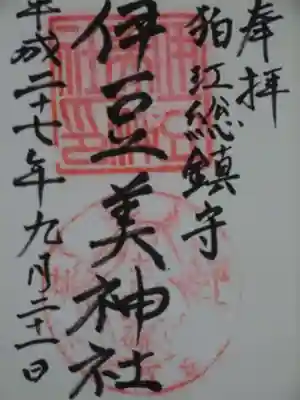 奉拝
狛江総鎮守
伊豆美神社
平成二十七年九月二十一日